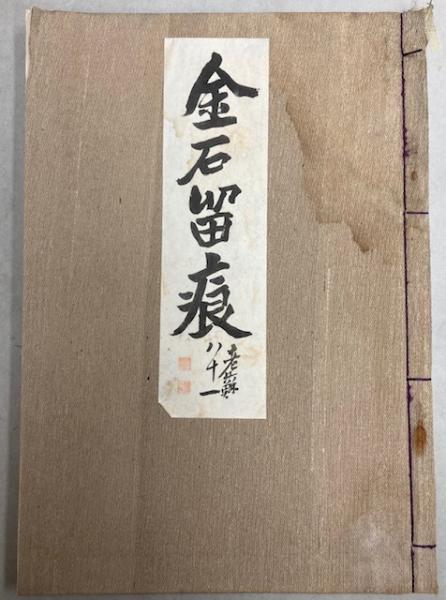 金石留痕
老蘇
八十一